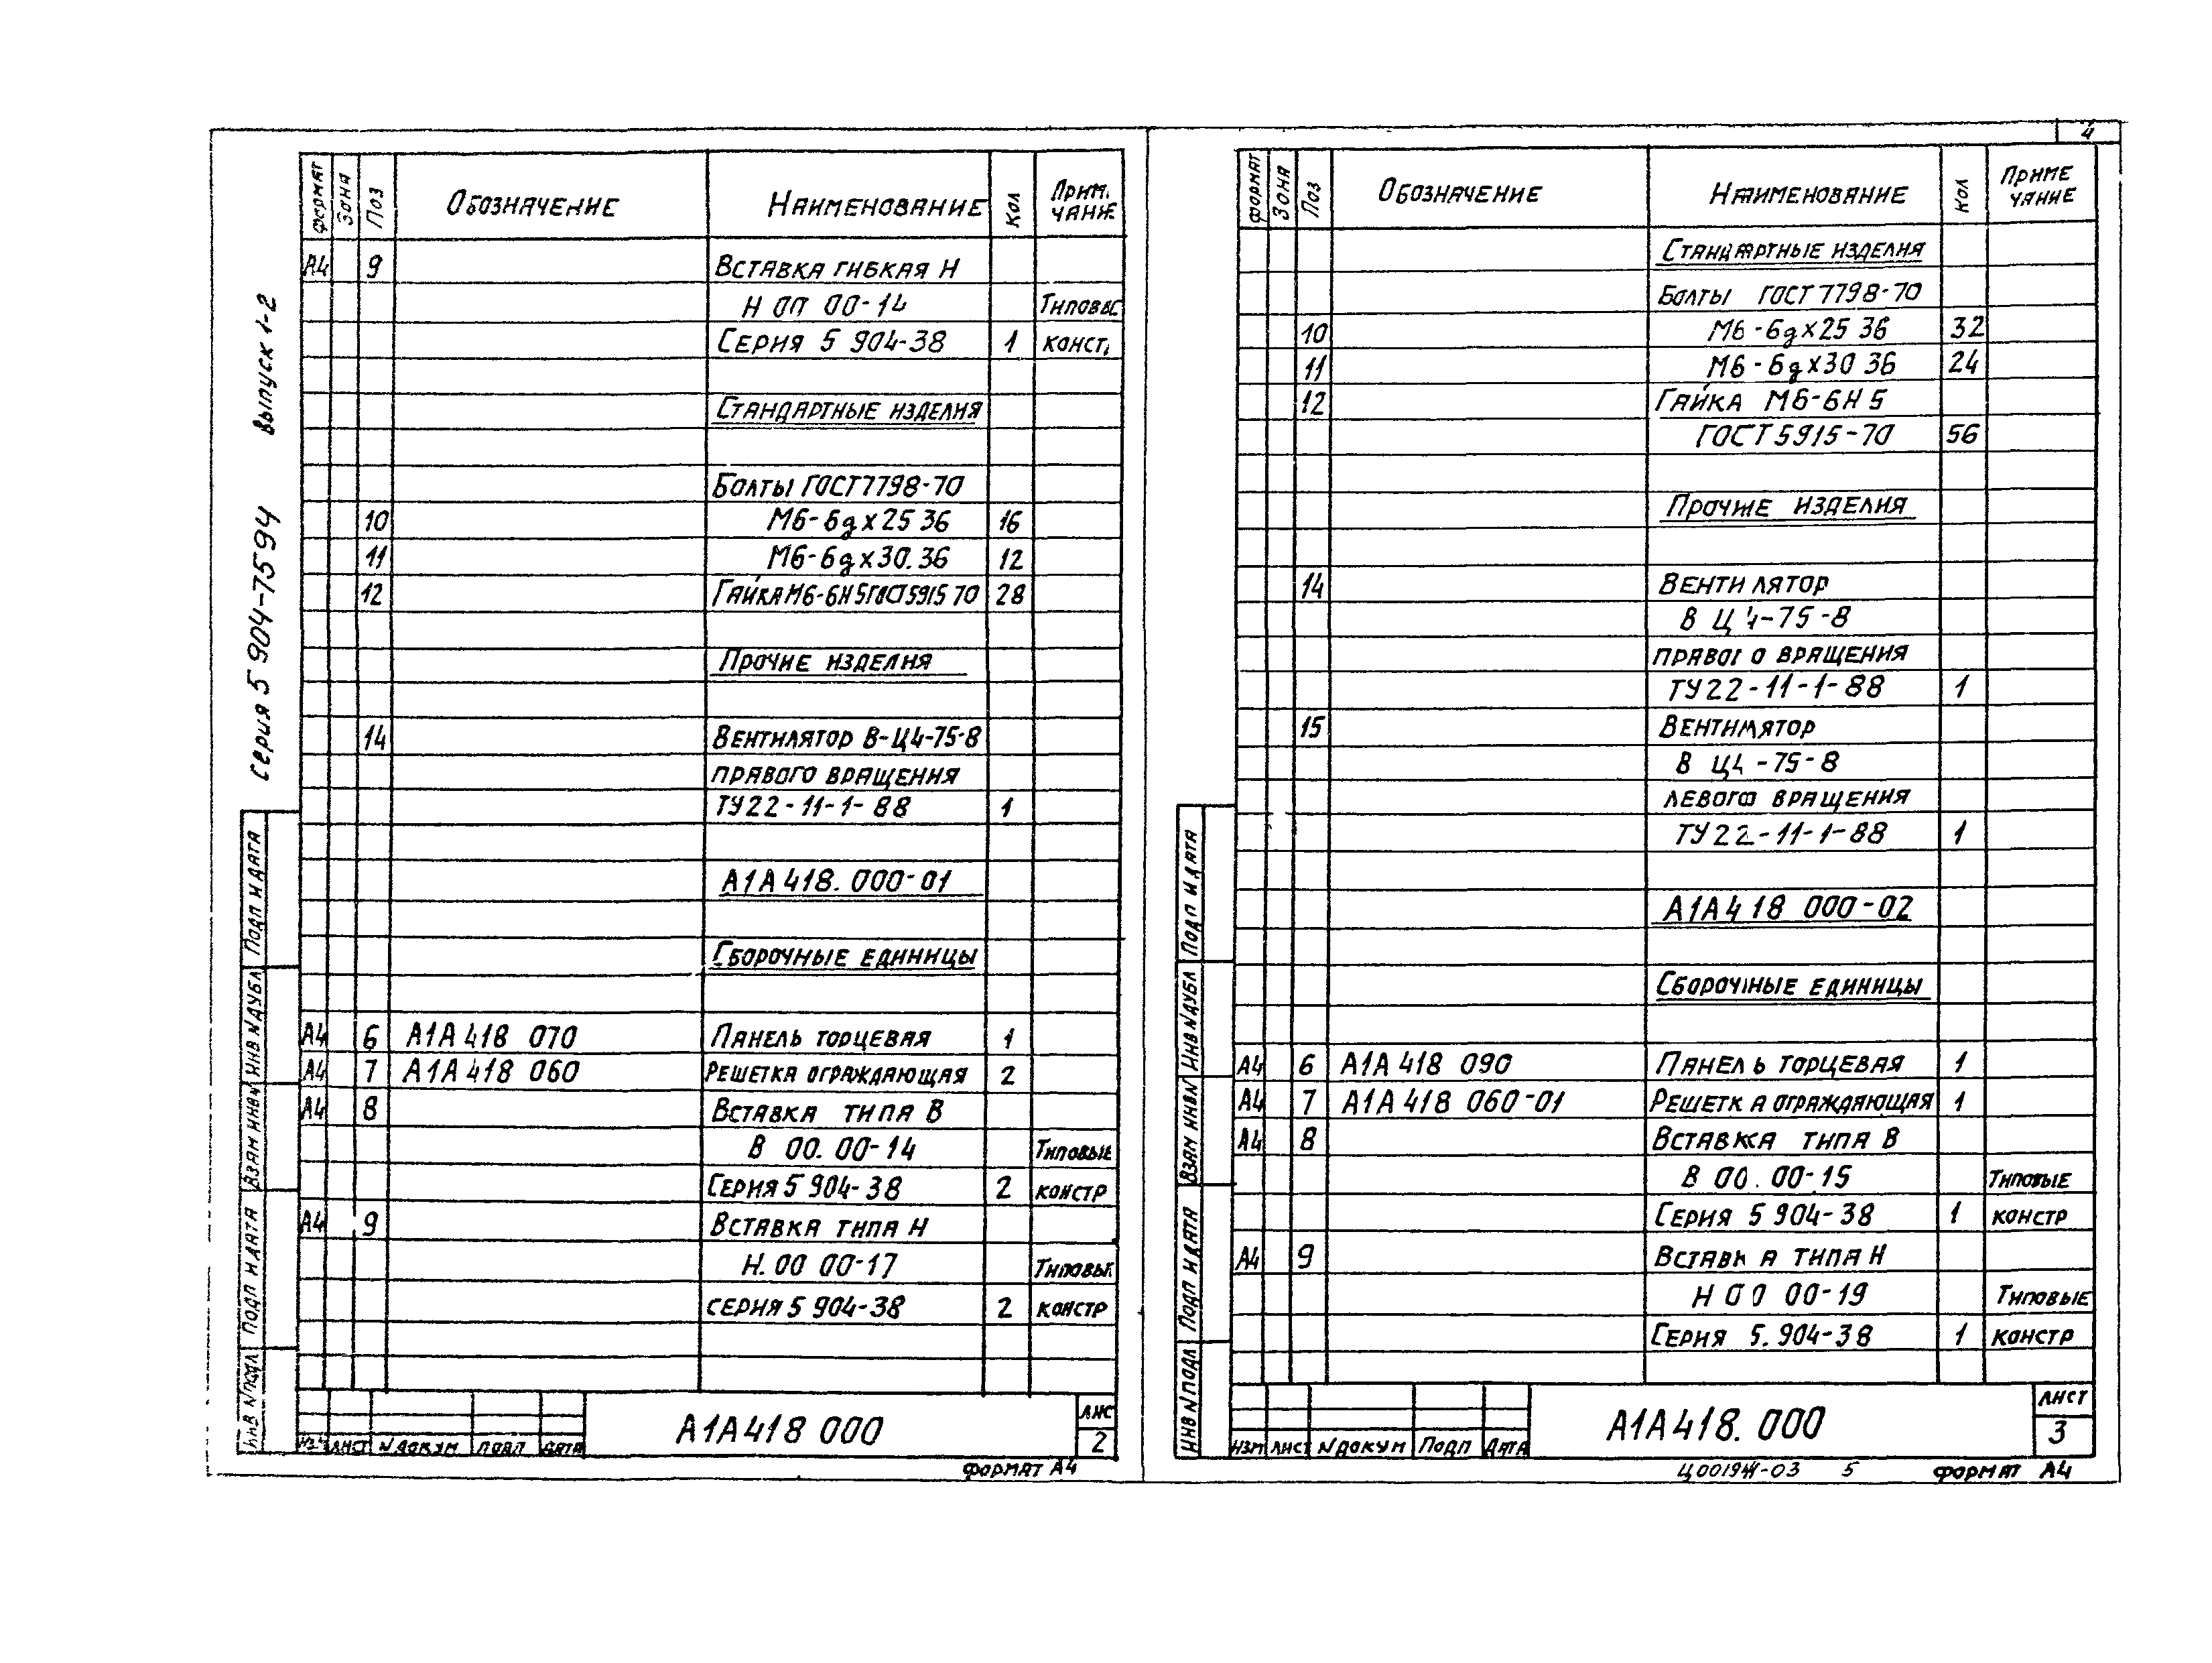 4
серия 5 904-75 94 выпуск 1-2
Формат Зона Поз Обозначение Наименование Кол Прим. чание
А4 9 Вставка гибкая Н
Н 00 00-14 Типовые
Серия 5 904-38 1 конст.
Стандартные изделия
Болты ГОСТ 7798-70
10 М6-6gх25 36 16
11 М6-6gх30.36 12
12 Гайка М6-6Н 5 ГОСТ 5915 70 28
Прочие изделия
14 Вентилятор В-Ц4-75-8
правого вращения
ТУ 22-11-1-88 1
А1А 418. 000-01
Сборочные единицы
А4 6 А1А 418 070 Панель торцевая 1
А4 7 А1А 418 060 Решетка ограждающая 2
А4 8 Вставка типа В
В 00. 00-14 Типовые
Серия 5 904-38 2 констр
А4 9 Вставка типа Н
Н. 00 00-17 Типовые
серия 5 904-38 2 констр
Подп и дата
Инв N дубл
Взам инв N
Подп и дата
Инв N подл
Изм Лист N докум Подп Дата
А1А 418 000
Лис
2
Формат А4
Формат Зона Поз Обозначение Наименование Кол Приме чание
Стандартные изделия
Болты ГОСТ 7798-70
10 М6-6gх25 36 32
11 М6-6gх30 36 24
12 Гайка М6-6Н 5
ГОСТ 5915-70 56
Прочие изделия
14 Вентилятор
В Ц 4-75-8
правого вращения
ТУ 22-11-1-88 1
15 Вентилятор
В Ц4-75-8
левого вращения
ТУ 22-11-1-88 1
А1А 418 000-02
Сборочные единицы
А4 6 А1А 418 090 Панель торцевая 1
А4 7 А1А 418 060-01 Решетка ограждающая 1
А4 8 Вставка типа В
В 00. 00-15 Типовые
Серия 5 904-38 1 констр
А4 9 Вставка типа Н
Н 00 00-19 Типовые
Серия 5. 904-38 1 констр
Подп и дата
Инв N дубл
Взам инв N
Подп и дата
Инв N подл
Изм Лист N докум Подп Дата
А1А 418. 000
Лист
3
5 Формат А4